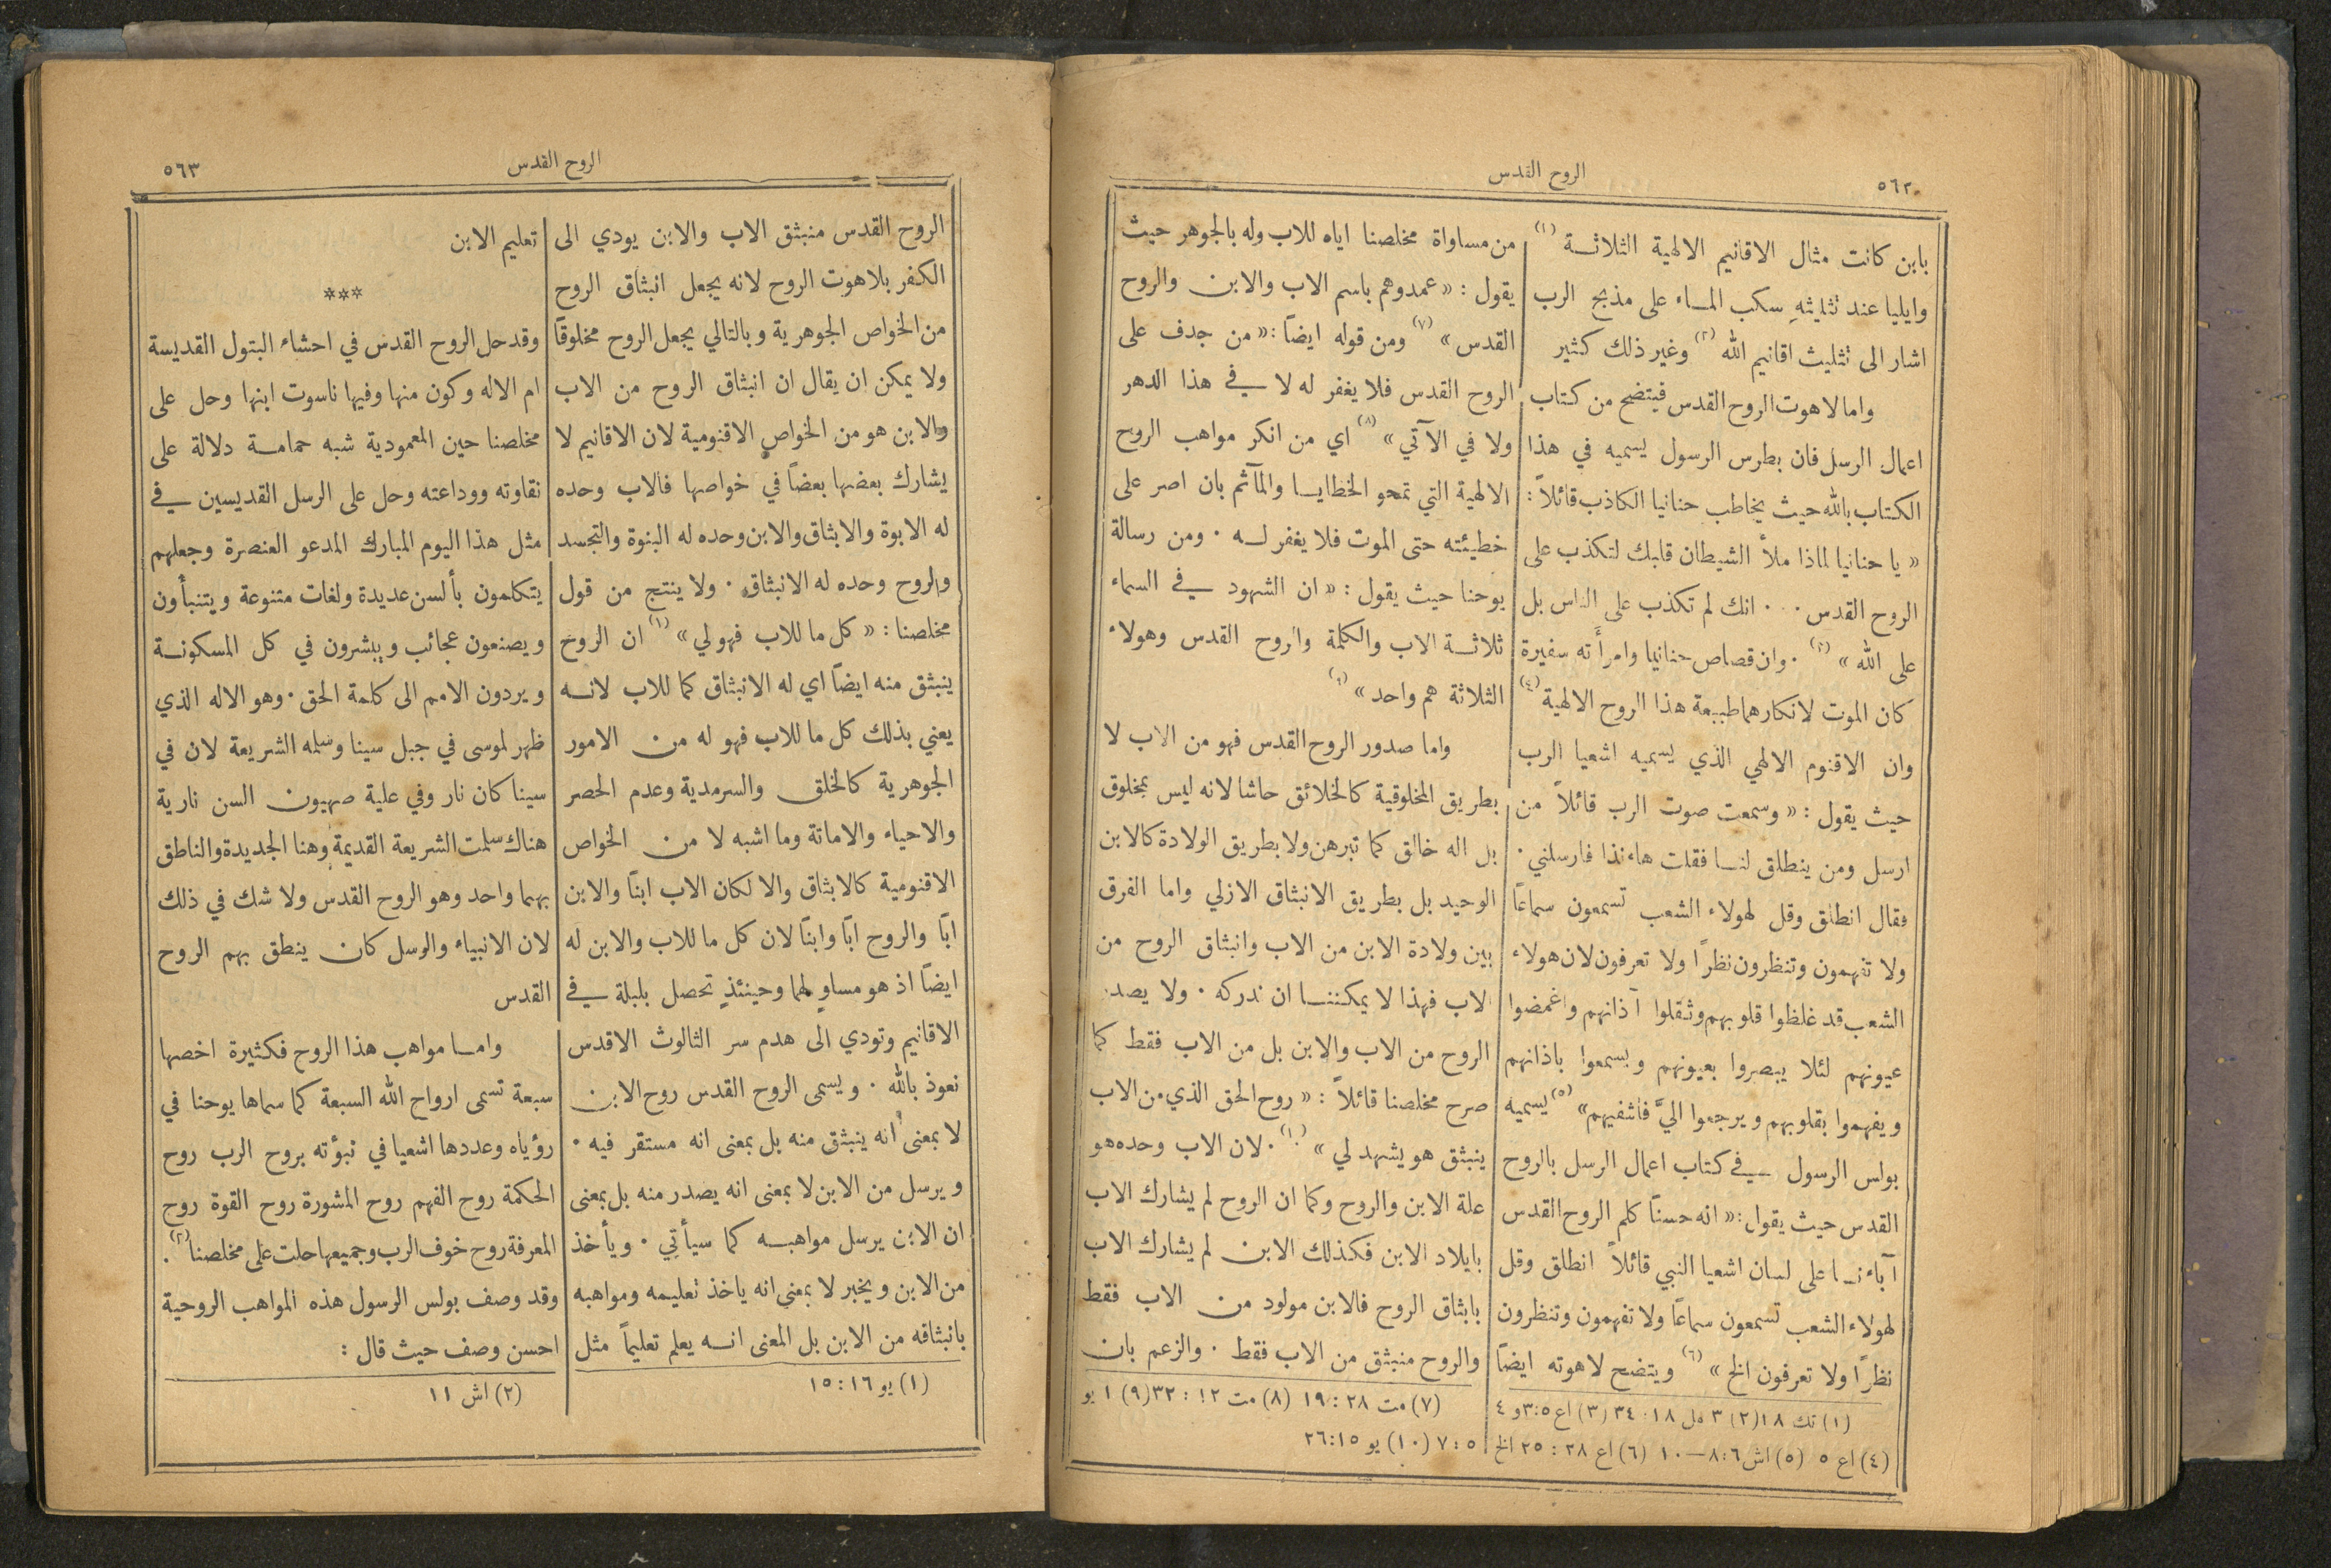 ٥٦٢
الروح القدس
بابن كانت مثال الاقانيم الالهية الثلاثة (١)
وايليا عند تثليثهِ سكب الماء على مذبح الرب
اشار الى تثليث اقانيم الله (٢) وغير ذلك كثير
واما لاهوت الروح القدس فيتضح من كتاب
اعمال الرسل فان بطرس الرسول يسميه في هذا
الكتاب بالله حيث يخاطب حنانيا الكاذب قائلاً :
« يا حنانيا لماذا ملأ الشيطان قلبك لتكذب على
الروح القدس . . انك لم تكذب على الناس بل
على الله » (٣) . وان قصاص حنانيا وامرأته سفيرة
كان الموت لانكارهما طبيعة هذا الروح الالهية (٤)
وان الاقنوم الالهي الذي يسميه اشعيا الرب
حيث يقول : « وسمعت صوت الرب قائلاً من
ارسل ومن ينطلق لنا فقلت هاءنذا فارسلني .
فقال انطلق وقل لهولاء الشعب تسمعون سماعًا
ولا تفهمون وتنظرون نظرًا ولا تعرفون لان هولاء
الشعب قد غلظوا قلوبهم وثقلوا آذانهم واغمضوا
عيونهم لئلا يبصروا بعيونهم ويسمعوا باذانهم
ويفهموا بقلوبهم ويرجعوا اليَّ فاشفيهم» (٥) يسميه
بولس الرسول في كتاب اعمال الرسل بالروح
القدس حيث يقول : « انه حسنًا كلم الروح القدس
آباءنا على لسان اشعيا النبي قائلاً انطلق وقل
لهولاء الشعب تسمعون سماعًا ولا تفهمون وتنظرون
نظرًا ولا تعرفون الخ » (٦) ويتضح لاهوته ايضًا
من مساواة مخلصنا اياه للاب وله بالجوهر حيث
يقول : « عمدوهم باسم الاب والابن والروح
القدس » (٧) ومن قوله ايضًا : « من جدف على
الروح القدس فلا يغفر له لا في هذا الدهر
ولا في الآتي » (٨) اي من انكر مواهب الروح
الالهية التي تمحو الخطايا والمآثم بان اصر على
خطيئته حتى الموت فلا يغفر له . ومن رسالة
يوحنا حيث يقول : « ان الشهود في السماء
ثلاثة الاب والكلمة والروح القدس وهولاء
الثلاثة هم واحد » (٩)
واما صدور الروح القدس فهو من الاب لا
بطريق المخلوقية كالخلائق حاشا لانه ليس بمخلوق
بل اله خالق كما تبرهن ولا بطريق الولادة كالابن
الوحيد بل بطريق الانبثاق الازلي واما الفرق
بين ولادة الابن من الاب وانبثاق الروح من
الاب فهذا لا يمكننا ان ندركه . ولا يصدر
الروح من الاب والابن بل من الاب فقط كما
صرح مخلصنا قائلاً : « روح الحق الذي من الاب
ينبثق هو يشهد لي » (١٠) . لان الاب وحده هو
علة الابن والروح وكما ان الروح لم يشارك الاب
بايلاد الابن فكذلك الابن لم يشارك الاب
بابثاق الروح فالابن مولود من الاب فقط
والروح منبثق من الاب فقط . والزعم بان
(١) تك ١٨ (٢) ٣ مل ١٨ : ٣٤ (٣) اع ٥ : ٣ و ٤
(٤) اع ٥ (٥) اش ٦ : ٨ — ١٠ (٦) اع ٢٨ : ٢٥ الخ
(٧) مت ٢٨ : ١٩ (٨) مت ١٢ : ٣٢ (٩) ١ يو
٥ : ٧ (١٠) يو ١٥ : ٢٦
الروح القدس
٥٦٣
الروح القدس منبثق الاب والابن يودي الى
الكفر بلاهوت الروح لانه يجعل انبثاق الروح
من الخواص الجوهرية وبالتالي يجعل الروح مخلوقًا
ولا يمكن ان يقال ان انبثاق الروح من الاب
والابن هو من الخواص الاقنومية لان الاقانيم لا
يشارك بعضها بعضًا في خواصها فالاب وحده
له الابوة والابثاق والابن وحده له البنوة والتجسد
والروح وحده له الانبثاق . ولا ينتج من قول
مخلصنا : « كل ما للاب فهو لي » (١) ان الروح
ينبثق منه ايضًا اي له الانبثاق كما للاب لانه
يعني بذلك كل ما للاب فهو له من الامور
الجوهرية كالخلق والسرمدية وعدم الحصر
والاحياء والاماتة وما اشبه لا من الخواص
الاقنومية كالابثاق والا لكان الاب ابنًا والابن
ابًا والروح ابًا وابنًا لان كل ما للاب والابن له
ايضًا اذ هو مساوٍ لهما وحينئذٍ تحصل بلبلة في
الاقانيم وتودي الى هدم سر الثالوث الاقدس
نعوذ بالله . ويسمى الروح القدس روح الابن
لا بمعنى انه ينبثق منه بل بمعنى انه مستقر فيه .
ويرسل من الابن لا بمعنى انه يصدر منه بل بمعنى
ان الابن يرسل مواهبه كما سيأتي . ويأخذ
من الابن ويخبر لا بمعنى انه ياخذ تعليمه ومواهبه
بانبثاقه من الابن بل المعنى انه يعلم تعليمًا مثل
(١) يو ١٦ : ١٥
تعليم الابن
***
وقد حل الروح القدس في احشاء البتول القديسة
ام الاله وكون منها وفيها ناسوت ابنها وحل على
مخلصنا حين المعمودية شبه حمامة دلالة على
نقاوته ووداعته وحل على الرسل القديسين في
مثل هذا اليوم المبارك المدعو العنصرة وجعلهم
يتكلمون بألسن عديدة ولغات متنوعة ويتنبأون
ويصنعون عجائب ويبشرون في كل المسكونة
ويردون الامم الى كلمة الحق . وهو الاله الذي
ظهر لموسى في جبل سينا وسلمه الشريعة لان في
سينا كان نار وفي علية صهيون السن نارية
هناك سلمت الشريعة القديمة وهنا الجديدة والناطق
بهما واحد وهو الروح القدس ولا شك في ذلك
لان الانبياء والرسل كان ينطق بهم الروح
القدس
واما مواهب هذا الروح فكثيرة اخصها
سبعة تسمى ارواح الله السبعة كما سماها يوحنا في
رؤياه وعددها اشعيا في نبؤته بروح الرب روح
الحكمة روح الفهم روح المشورة روح القوة روح
المعرفة روح خوف الرب وجميعها حلت على مخلصنا (٢) .
وقد وصف بولس الرسول هذه المواهب الروحية
احسن وصف حيث قال :
(٢) اش ١١